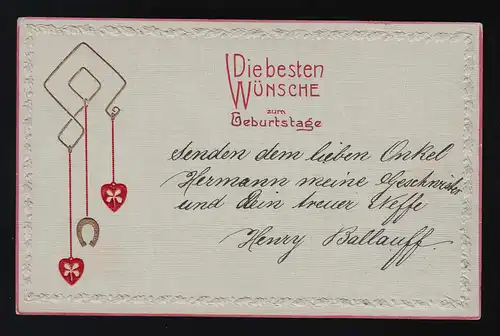 Die besten
WÜNSCHE
zum
Geburtstage
Senden dem lieben Onkel
Hermann meine Geschwister
und dein treuer Neffe
Henry Ballauff.